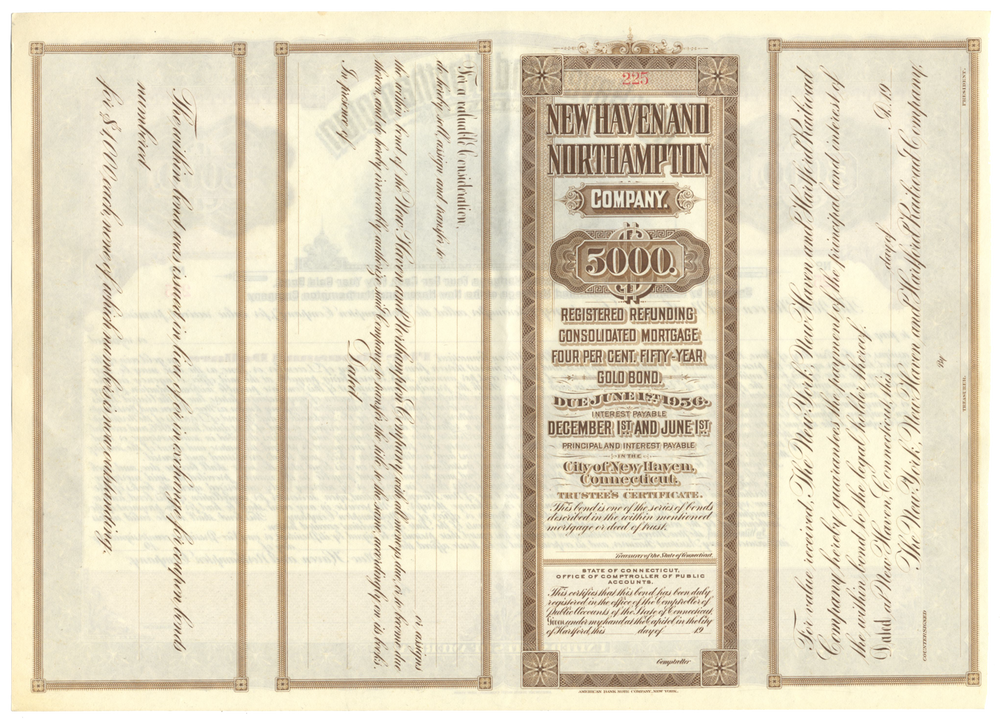 The within bond was issued in lieu of or in exchange for coupon bonds
numbered
for $1,000 each, none of which numbers is now outstanding.
For a valuable Consideration,
do hereby sell, assign and transfer to
or assigns
the within bond of the New Haven and Northampton Company, with all moneys due, or to become due
thereon, and do hereby irrevocably authorize said Company to transfer the title to the same, accordingly, on its books.
Dated
In presence of
225
NEW HAVEN AND
NORTHAMPTON
COMPANY.
5000.
REGISTERED REFUNDING
CONSOLIDATED MORTGAGE
FOUR PER CENT, FIFTY-YEAR
GOLD BOND,
DUE JUNE 1ST, 1956.
INTEREST PAYABLE
DECEMBER 1ST AND JUNE 1ST
PRINCIPAL AND INTEREST PAYABLE
IN THE
City of New Haven,
Connecticut.
TRUSTEE'S CERTIFICATE.
This bond is one of the series of bonds
described in the within mentioned
mortgage or deed of trust.
Treasurer of the State of Connecticut.
STATE OF CONNECTICUT,
OFFICE OF COMPTROLLER OF PUBLIC
ACCOUNTS.
This certifies that this bond has been duly
registered in the office of the Comptroller of
Public Accounts of the State of Connecticut.
Given under my hand at the Capitol in the City
of Hartford, this day of 19
Comptroller
AMERICAN BANK NOTE COMPANY, NEW YORK.
For value received, The New York, New Haven and Hartford Railroad
Company hereby guarantees the payment of the principal and interest of
the within bond to the legal holder thereof.
Dated at New Haven, Connecticut, this day of A.D. 19
The New York, New Haven and Hartford Railroad Company,
By
PRESIDENT.
TREASURER.
COUNTERSIGNED